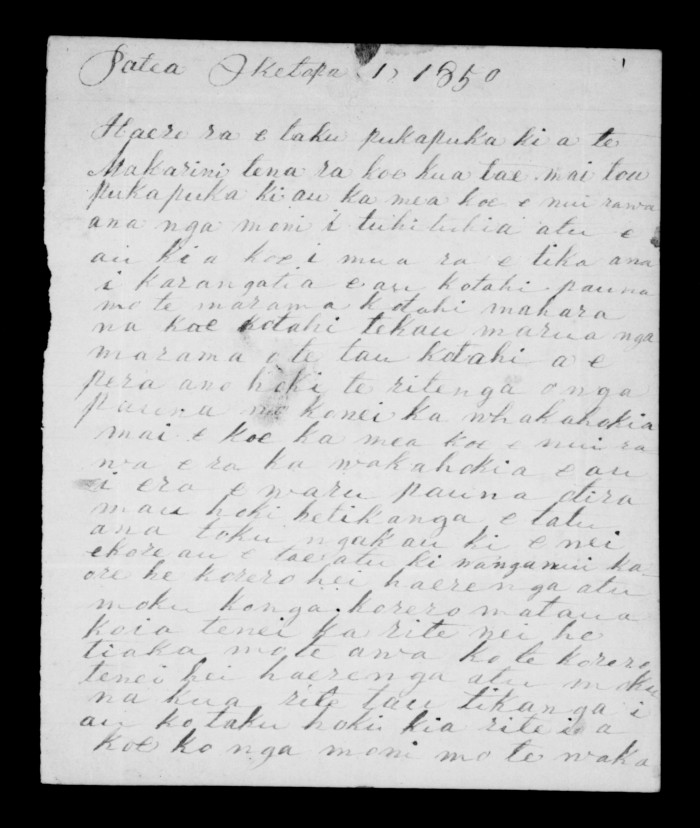 Patea Oketopa 1, 1850
Haere ra e taku pukapuka ki a te
Makarini tena ra koe kua tae mai tou
pukapuka ki au ka mea koe e nui rawa
ana nga moni i tuhituhia atu e
au ki a koe i mua ra e tika ana
i karangatia e au kotahi pauna
mo te marama kotahi mahara
na koe kotahi tekau marua nga
marama o te tau kotahi a e
pera ano hoki te ritenga o nga
pauna no konei ka whakahokia
mai e koe ka mea koe e nui ra
wa e ra ka wakahokia e au
i era e waru pauna otira
mau hoki hetikanga e tatu
ana toku ngakau ki enei
ekore au e tae atu ki wanganui ka
ore he korero hei haerenga atu
moku konga korero mataua
koia tenei ka rite nei he
tiaka mo te awa ko te korero
tenei hei haerenga atu moku
na kua rite tau tikanga i
au ko taku hoki kia rite i a
koe ko nga moni mo te waka